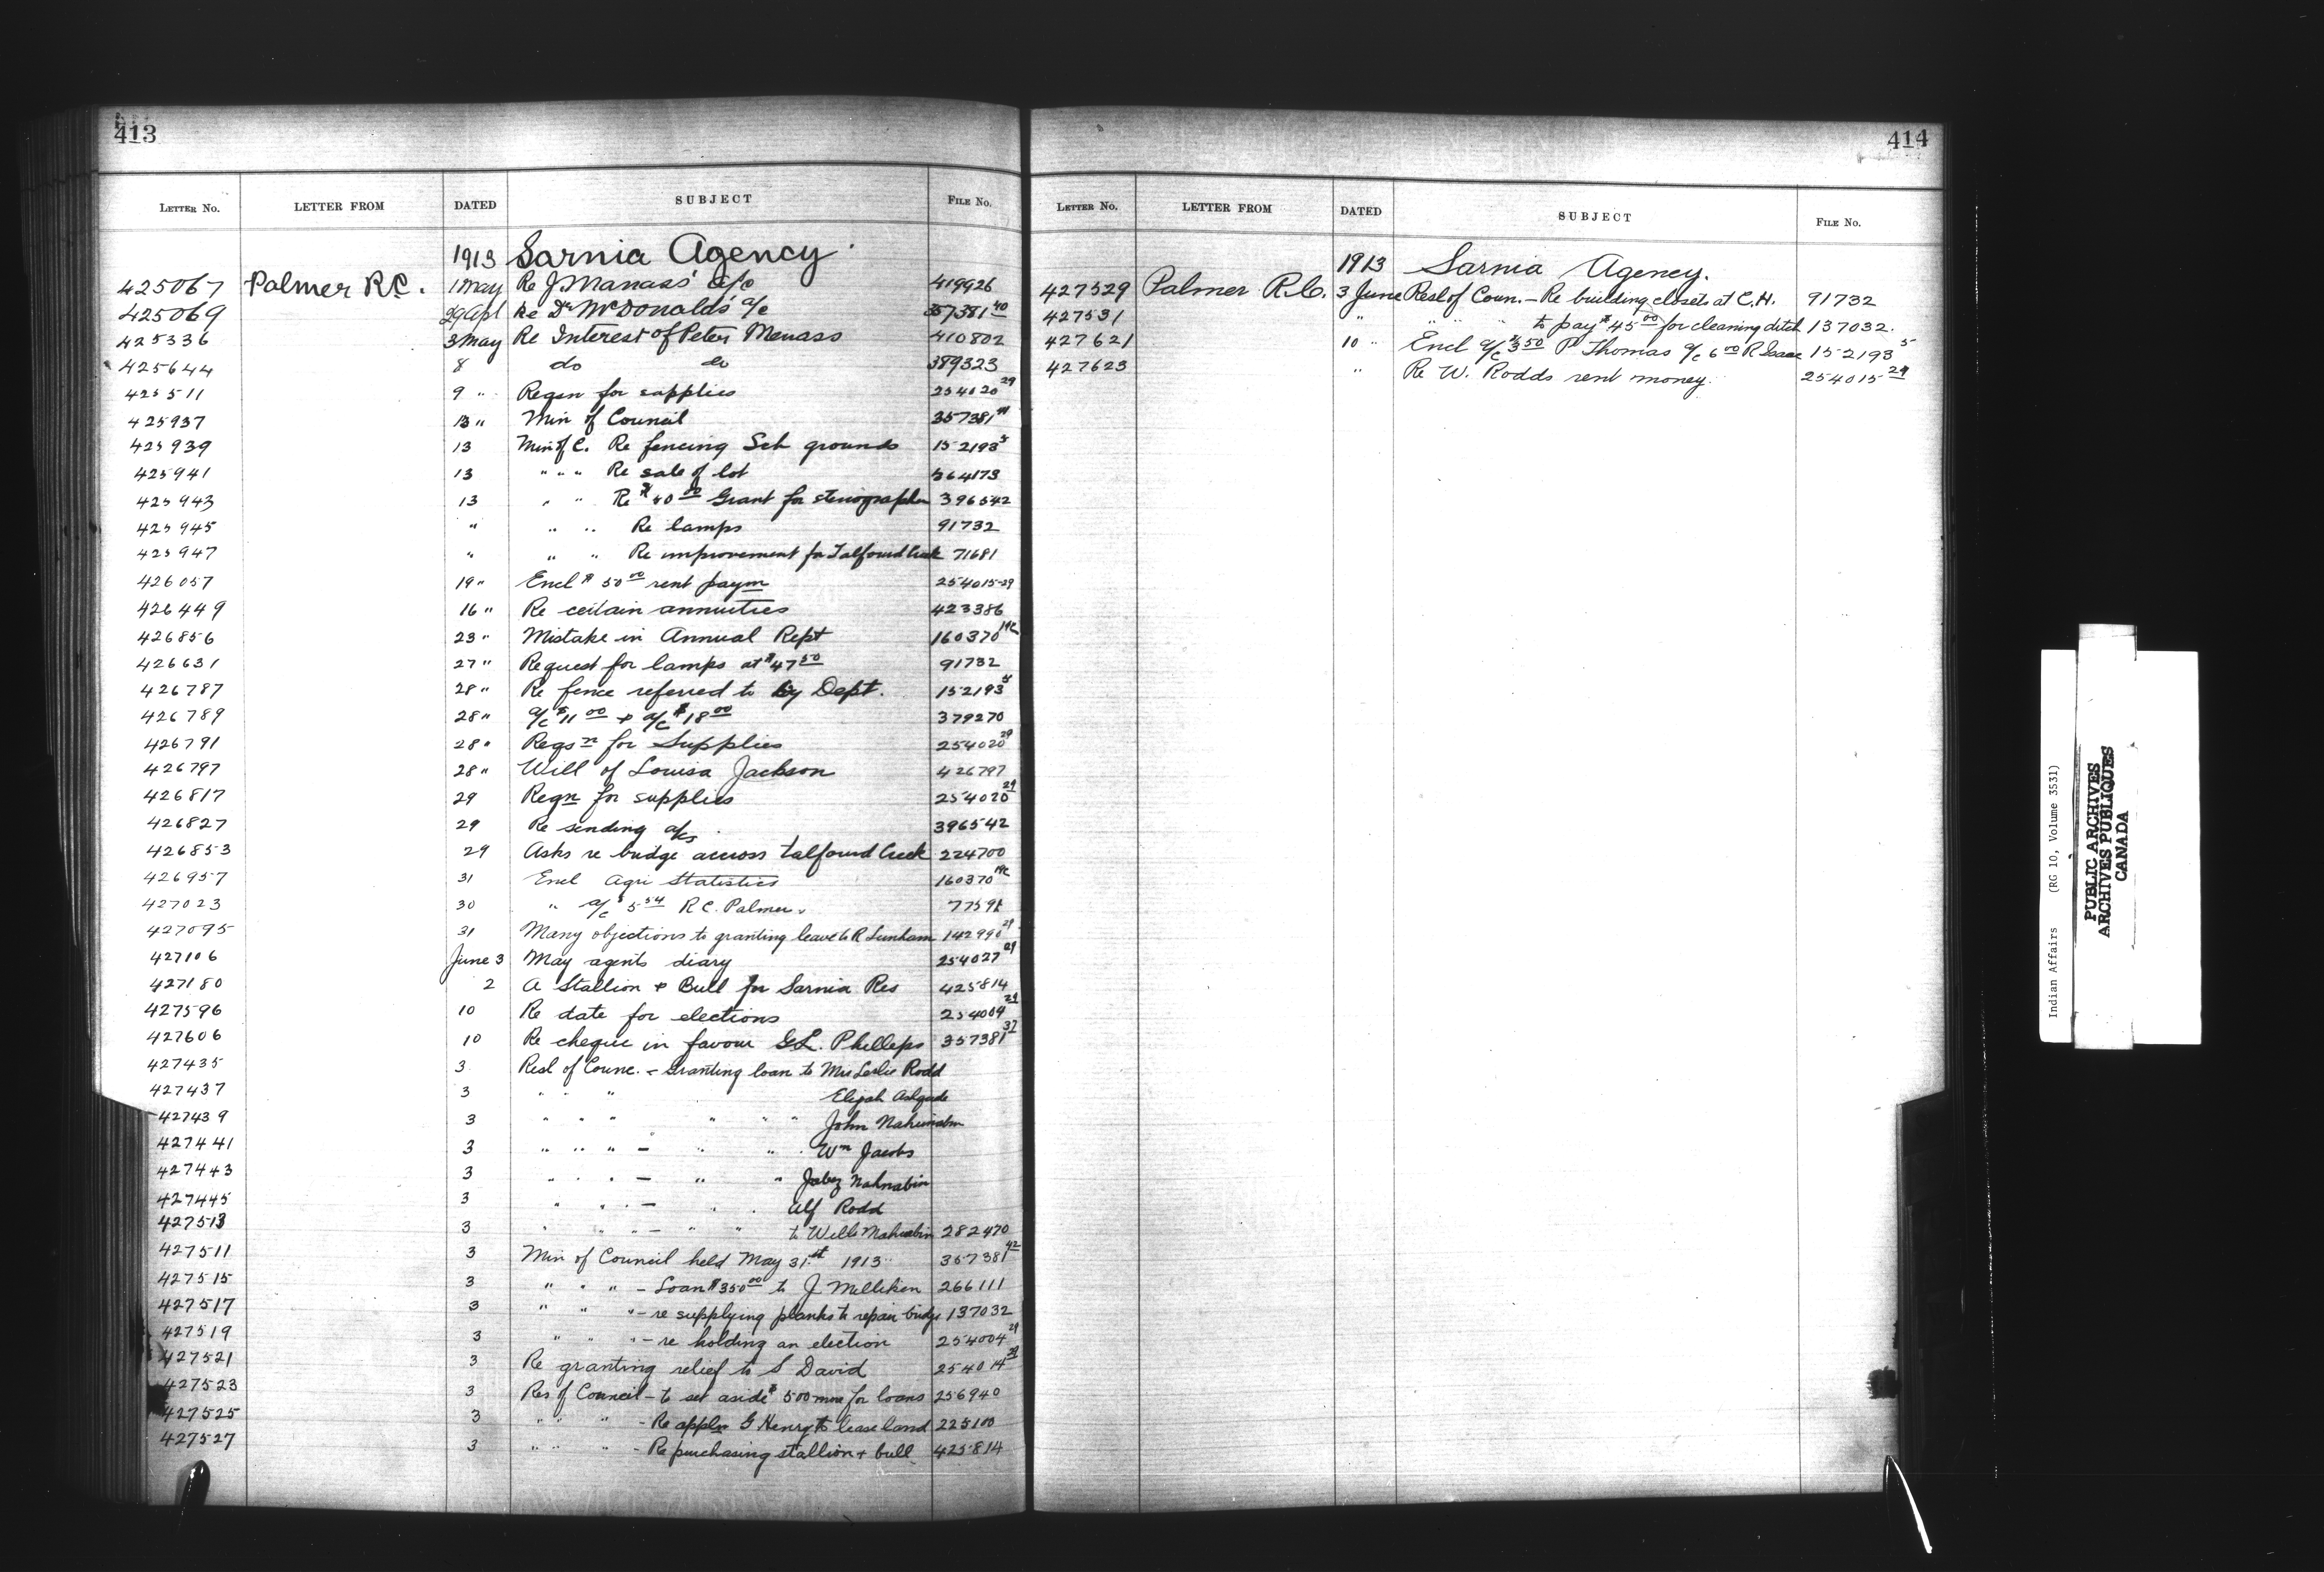 413
LETTER No. LETTER FROM DATED SUBJECT FILE No.
1913 Sarnia Agency
425067 Palmer R.C. 1 May Re J Manass' a/c 419926
425069 29 Apl Re Dr McDonald's a/c 357381 40
425336 3 May Re Interest of Peter Menass 410802
425644 8 do do 389323
425511 9 " Reqsn for supplies 254020 29
425937 13 " Min of Council 357381
425939 13 Min of C. Re fencing Sch grounds 152193 5
425941 13 " " " Re sale of lot 364173
425943 13 " " Re $40 00 Grant for stenographer 396542
425945 " " " Re lamps 91732
425947 " " " Re improvement for Talfourd Creek 71681
426057 19 " Encl $50 00 rent paym 254015-29
426449 16 " Re certain annuities 423386
426856 23 " Mistake in Annual Rept 160370 19c
426631 27 " Request for lamps at $47 50 91732
426787 28 " Re fence referred to by Dept. 152193 5
426789 28 " a/c $11 00 + a/c $18 00 379270
426791 28 " Reqsn for Supplies 254020 29
426797 28 " Will of Louisa Jackson 426797
426817 29 Reqn for supplies 254020 29
426827 29 Re sending a/cs 396542
426853 29 Asks re bridge across Talfourd Creek 224700
426957 31 Encl Agri Statistics 160370 19c
427023 30 " a/c $5 54 R.C. Palmer. 77591
427095 31 Many objections to granting leave to R Lunham 142990 29
427106 June 3 May agents diary 254027 29
427180 2 A Stallion + Bull for Sarnia Res 425814
427596 10 Re date for elections 254004 29
427606 10 Re cheque in favour G.L. Phelleps 357381 37
427435 3 Resl of Counc. - Granting loan to Mrs Leslie Rodd
427437 3 " " " Elijah
427439 3 " " " " " " John
427441 3 " " " - " " Wm Jacobs
427443 3 " " " - " " Jabez Nahnabin
427445 3 " " " - " " Alf Rodd
427513 3 " " " - " " to 282470
427511 3 Min of Council held May 31st 1913 357381 42
427515 3 " " " - Loan $350 00 to J Milliken 266111
427517 3 " " " - re supplying planks to repair bridge 137032
427519 3 " " " - re holding an election 254004 29
427521 3 Re granting relief to S David 254014 29
427523 3 Res of Council - to set aside $500 more for loans 256940
427525 3 " " " - Re appln G Henry to lease land 225100
427527 3 " " " - Re purchasing stallion + bull 425814
414
LETTER No. LETTER FROM DATED SUBJECT FILE No.
1913 Sarnia Agency.
427529 Palmer R.C. 3 June Resl of Coun. - Re building closets at C.H. 91732
427531 " " " " to pay $45 00 for cleaning ditch 137032.
427621 10 " Encl a/c $3 50 P Thomas a/c 6 00 R Isaac 152193 5
427623 " Re W. Rodds rent money. 254015 29
Indian Affairs (RG 10, Volume 3531)
PUBLIC ARCHIVES
ARCHIVES PUBLIQUES
CANADA